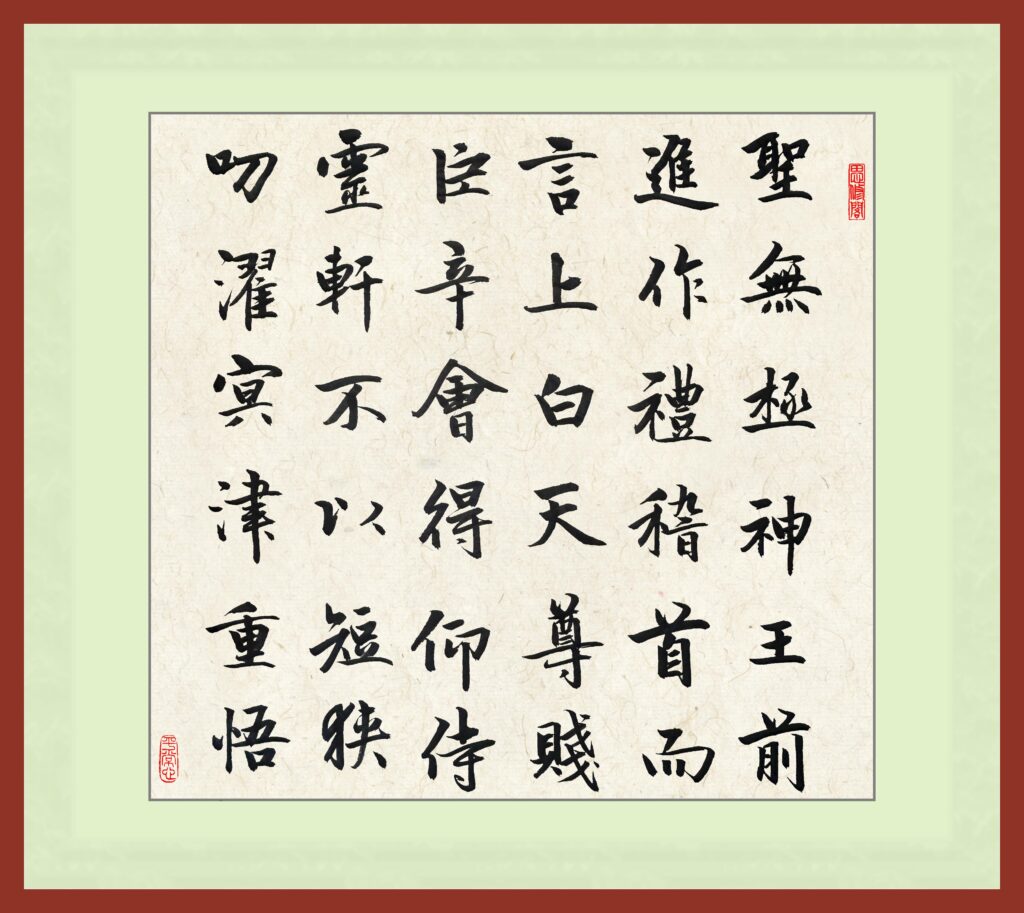 聖無極神王前
進作禮稽首而
言上白天尊賤
臣辛會得仰侍
靈軒不以短狹
叨濯冥津重悟
思修閣
平常心